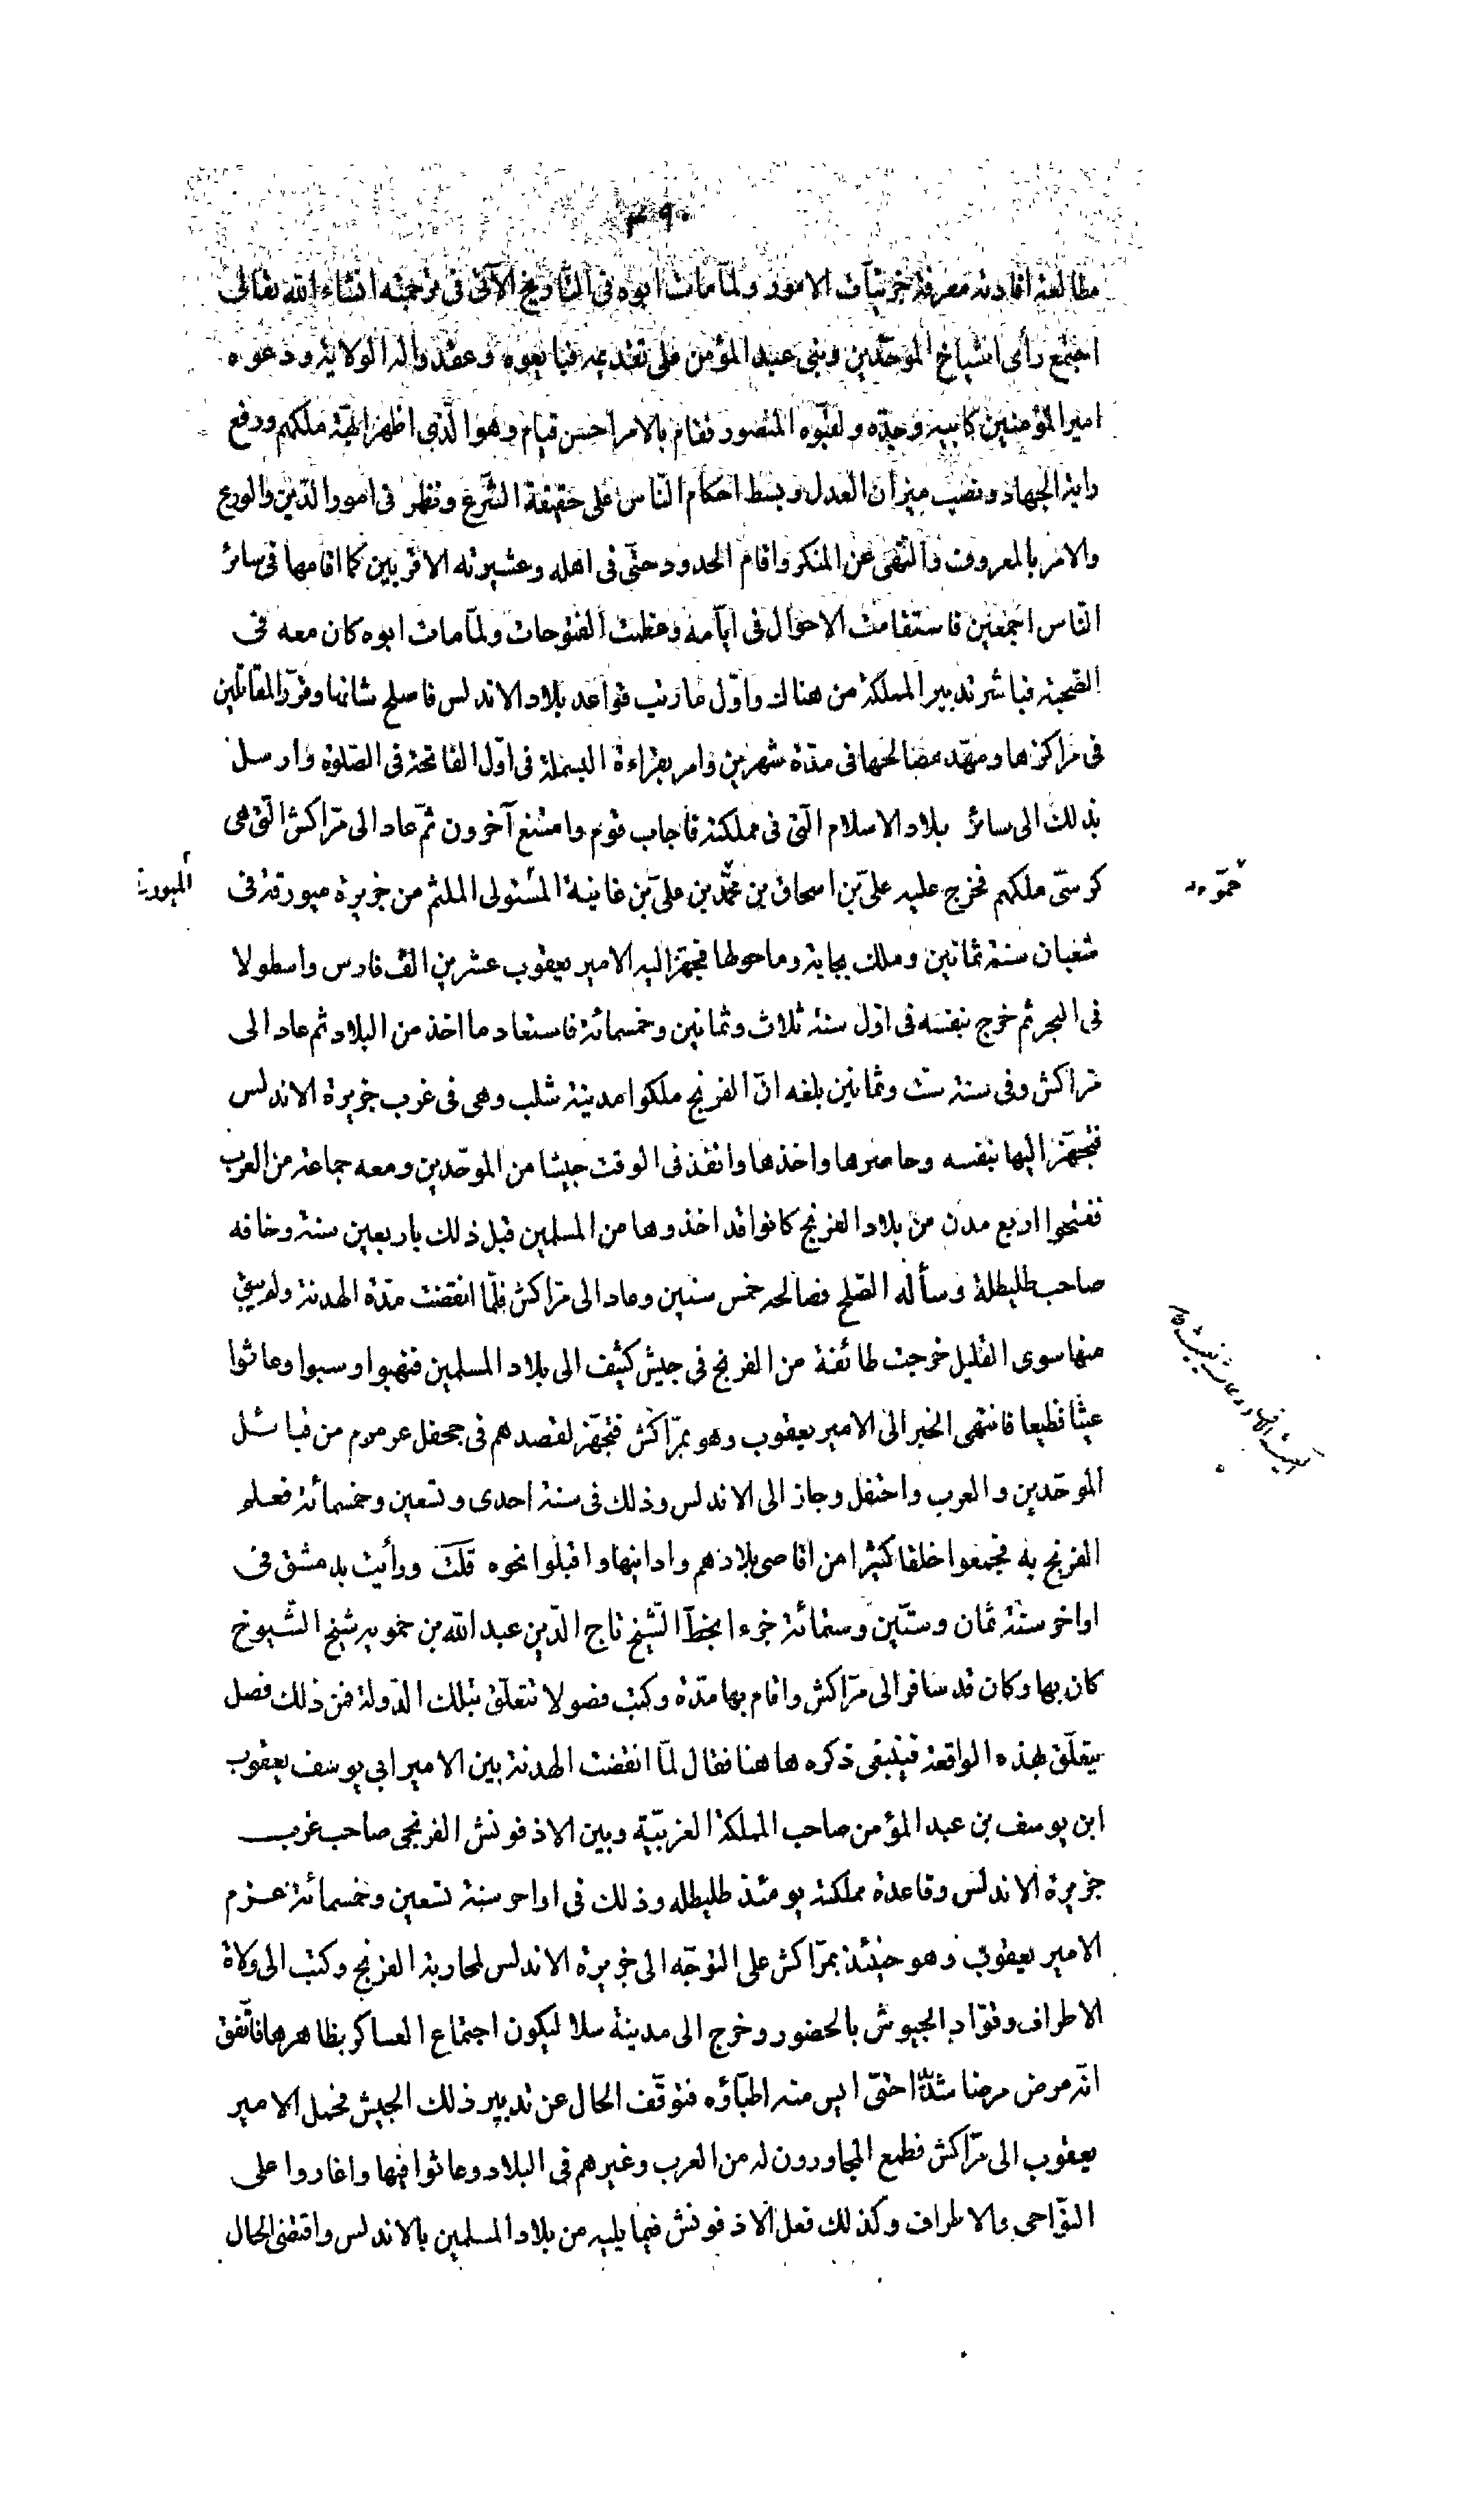 ٣٩٠
مطالعته افادته معرفة جزئيّات الامور ولمّا مات ابوه فى التّاريخ الآتى فى ترجمته انشاء الله تعالى
اجتمع رأى اشياخ الموحّدين وبنى عبد المؤمن على تقديمه فبايعوه وعقدوا له الولاية ودعوه
امير المؤمنين كابيه وجدّه ولقّبوه المنصور فقام بالامر احسن قيام وهو الّذى اظهر ابّهة ملكهم ورفع
راية الجهاد ونصب ميزان العدل وبسط احكام النّاس على حقيقة الشّرع ونظر فى امور الدّين والورع
والامر بالمعروف والنّهى عن المنكر واقام الحدود حتّى فى اهله وعشيرته الاقربين كما اقامها فى سائر
النّاس اجمعين فاستقامت الاحوال فى ايّامه وعظمت الفتوحات ولمّا مات ابوه كان معه فى
الصّحبة فباشر تدبير المملكة من هناك واوّل ما رتب قواعد بلاد الاندلس فاصلح شانها وقرّر المقاتلين
فى مراكزها ومهّد مصالحها فى مدّة شهرين وامر بقراءة البسملة فى اوّل الفاتحة فى الصّلوة وارسل
بذلك الى سائر بلاد الاسلام الّتى فى مملكته فاجاب قوم وامتنع آخرون ثمّ عاد الى مرّاكش الّتى هى
كرسىّ ملكهم فخرج عليه علىّ بن اسحاق بن محمّد بن علىّ بن غانية المستولى الملثم من جزيرة ميورقة فى
حمّو
شعبان سنة ثمانين وملك بجاية وما حولها فجهّز اليه الامير يعقوب عشرين الف فارس واسطولا
فى البحر ثم خرج بنفسه فى اول سنة ثلاث وثمانين وخمسمائة فاستعاد ما اخذ من البلاد ثم عاد الى
مراكش وفى سنة ستّ وثمانين بلغه انّ الفرنج ملكوا مدينة شلب وهى فى غرب جزيرة الاندلس
فتجهّز اليها بنفسه وحاصرها واخذها وانفذ فى الوقت جيشا من الموحّدين ومعه جماعة من العرب
ففتحوا اربع مدن من بلاد الفرنج كانوا قد اخذوها من المسلمين قبل ذلك باربعين سنة وخافه
صاحب طليطلة وسأله الصّلح فصالحه خمس سنين وعاد الى مرّاكش فلمّا انقضت مدّة الهدنة ولم يبق
منها سوى القليل خرجت طائفة من الفرنج فى جيش كثيف الى بلاد المسلمين فنهبوا وسبوا وعاثوا
عيثا فظيعا فانتهى الخبر الى الامير يعقوب وهو بمرّاكش فتجهّز لقصدهم فى جحفل عرمرم من قبائل
الموحّدين والعرب واحتفل وجاز الى الاندلس وذلك فى سنة احدى وتسعين وخمسمائة فعلم
الفرنج به فجمعوا خلقا كثيرا من اقاصى بلادهم وادانيها واقبلوا نحوه قلت ورأيت بدمشق فى
اواخر سنة ثمان وستّين وستمائة جزءا بخطّ الشّيخ تاج الدّين عبد الله بن حمويه شيخ الشّيوخ
كان بها وكان قد سافر الى مرّاكش واقام بها مدّة وكتب فصولا تتعلّق بتلك الدّولة فمن ذلك فصل
يتعلّق بهذه الواقعة فينبغى ذكره هاهنا فقال لمّا انقضت الهدنة بين الامير ابى يوسف يعقوب
ابن يوسف بن عبد المؤمن صاحب المملكة الغربيّة وبين الاذفونش الفرنجى صاحب غرب
جزيرة الاندلس وقاعدة مملكته يومئذ طليطله وذلك فى اواخر سنة تسعين وخمسمائة عزم
الامير يعقوب وهو حينئذ بمرّاكش على التوجّه الى جزيرة الاندلس لمحاربة الفرنج وكتب الى ولاة
الاطراف وقوّاد الجيوش بالحضور وخرج الى مدينة سلا ليكون اجتماع العساكر بظاهرها فاتّفق
انّه مرض مرضا شديدا حتّى ايس منه اطبّاؤه فتوقّف الحال عن تدبير ذلك الجيش فحمل الامير
يعقوب الى مرّاكش فطمع المجاورون له من العرب وغيرهم فى البلاد وعاثوا فيها واغاروا على
النّواحى والاطراف وكذلك فعل الاذفونش فيما يليه من بلاد المسلمين بالاندلس واقتضى الحال